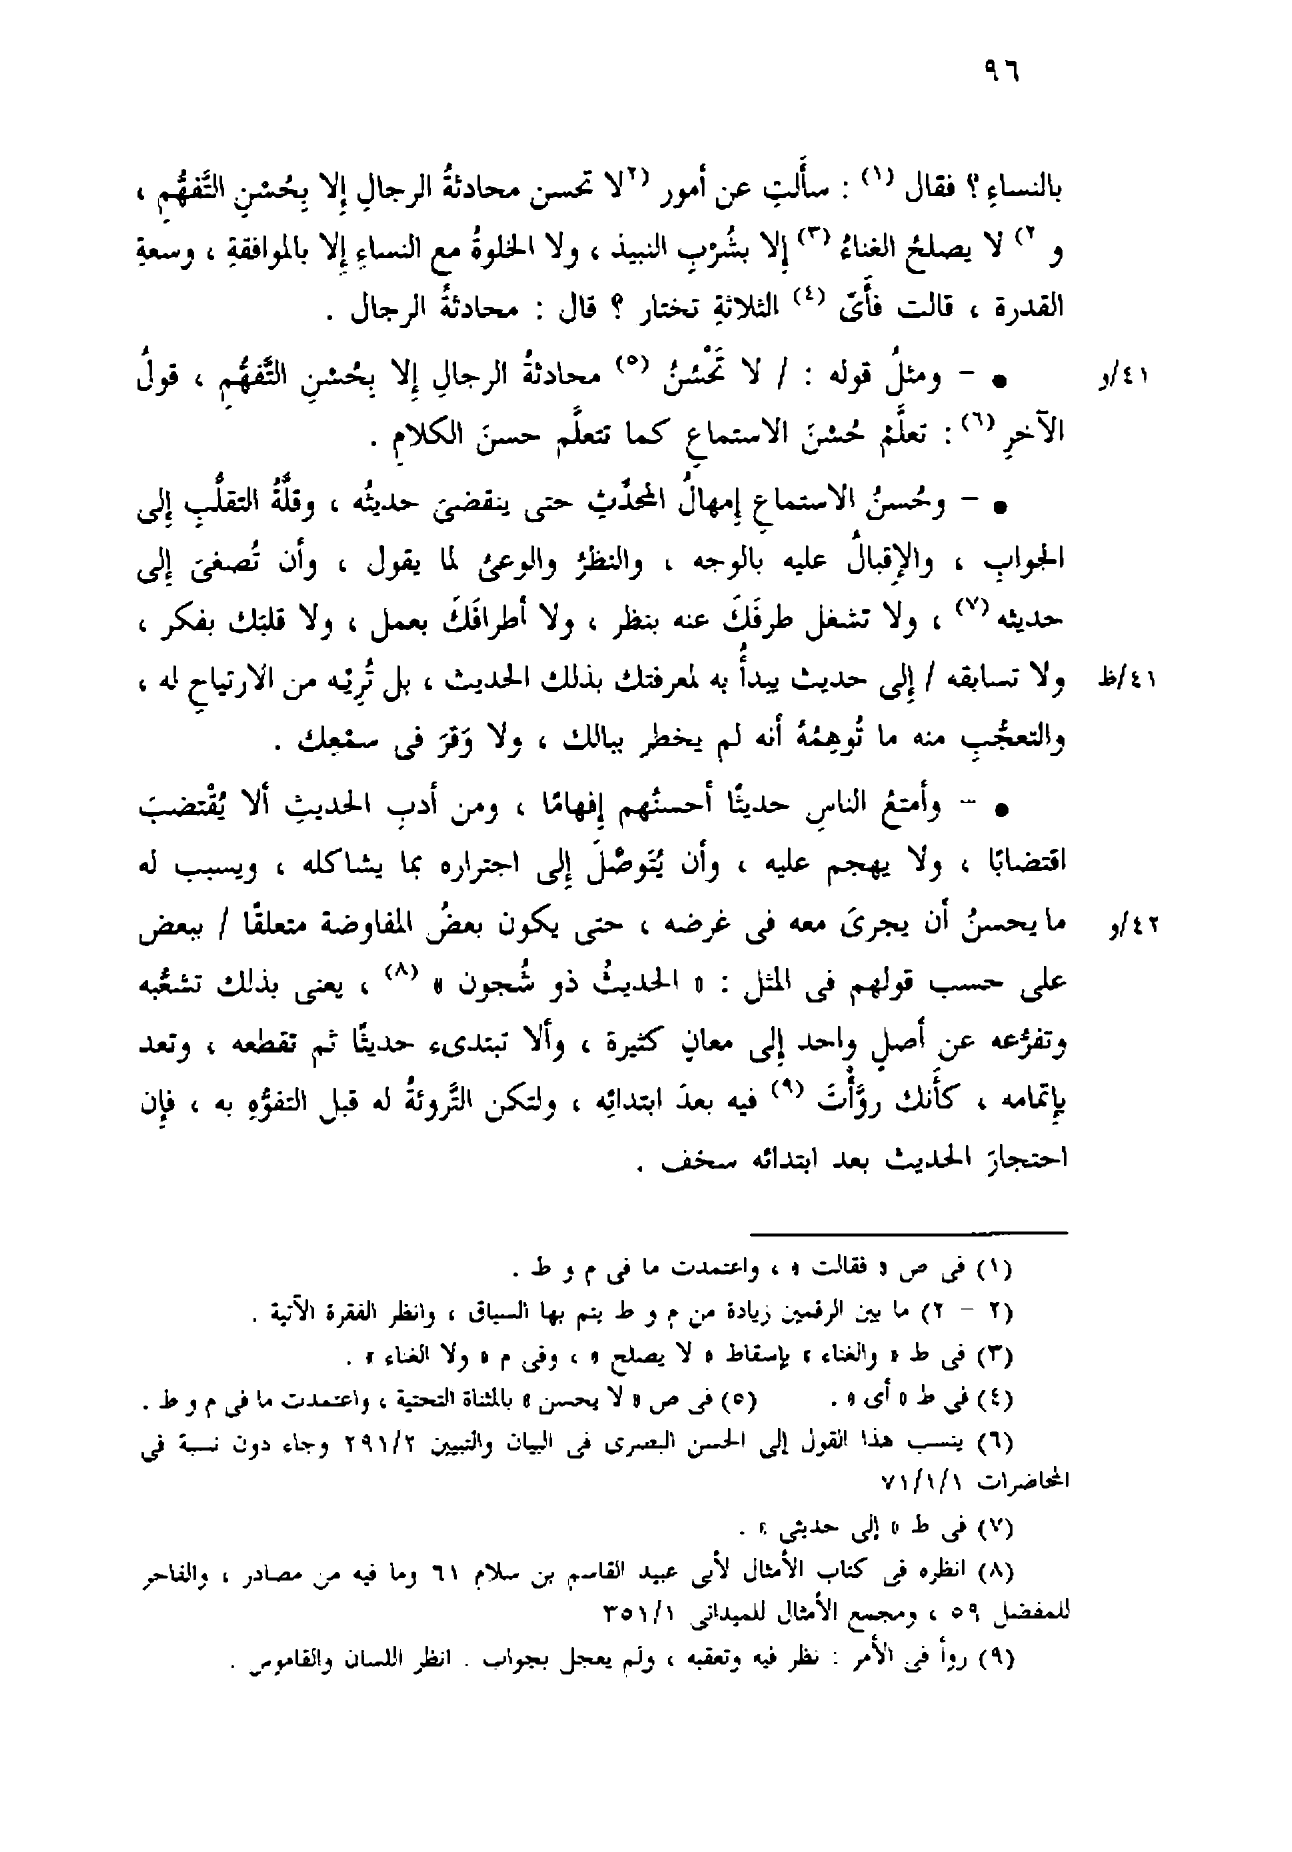 ٩٦
بالنساءِ ؟ فقال (١) : سأَلتِ عن أمور (٢لا تحسن محادثةُ الرجالِ إِلا بِحُسْنِ التَّفهُّمِ ،
و ٢) لا يصلحُ الغناءُ (٣) إلا بشُرْبِ النبيذ ، ولا الخلوةُ مع النساءِ إِلا بالموافقةِ ، وسعةِ
القدرة ، قالت فأَىّ (٤) الثلاثةِ تختار ؟ قال : محادثةُ الرجال .
● – ومثلُ قوله : / لا تَحْسُنُ (٥) محادثةُ الرجالِ إلا بِحُسْنِ التَّفهُّمِ ، قولُ ٤١/و
الآخرِ (٦) : تعلَّمْ حُسْنَ الاستماعِ كما تتعلَّم حسنَ الكلامِ .
● – وحُسنُ الاستماعِ إِمهالُ المحدِّثِ حتى ينقضىَ حديثُه ، وقلَّةُ التقلُّبِ إِلى
الجوابِ ، والإقبالُ عليه بالوجه ، والنظرُ والوعىُ لما يقول ، وأن تُصغىَ إِلى
حديثه (٧) ، ولا تشغل طرفَكَ عنه بنظر ، ولا أطرافَكَ بعمل ، ولا قلبَك بفكر ،
ولا تسابقه / إِلى حديث يبدأُ به لمعرفتك بذلك الحديث ، بل تُرِيْه من الارتياحِ له ، ٤١/ظ
والتعجُّبِ منه ما تُوهِمُهُ أنه لم يخطر ببالك ، ولا وَقَرَ فى سمْعِك .
● – وأمتعُ الناسِ حديثًا أحسنُهم إفهامًا ، ومن أدبِ الحديثِ ألا يُقْتضبَ
اقتضابًا ، ولا يهجم عليه ، وأن يُتَوصَّلَ إِلى اجتراره بما يشاكله ، ويسبب له
ما يحسنُ أن يجرىَ معه فى غرضه ، حتى يكون بعضُ المفاوضة متعلقًا / ببعض ٤٢/و
على حسب قولهم فى المثل : « الحديثُ ذو شُجون » (٨) ، يعنى بذلك تشعُّبه
وتفرُّعه عن أصلٍ واحد إلى معانٍ كثيرة ، وألا تبتدىء حديثًا ثم تقطعه ، وتعد
بإتمامه ، كأَنك روَّأْتَ (٩) فيه بعدَ ابتدائِه ، ولتكن التَّروئةُ له قبل التفوُّهِ به ، فإن
احتجازَ الحديث بعد ابتدائه سخف .
(١) فى ص « فقالت » ، واعتمدت ما فى م و ط .
(٢ – ٢) ما بين الرقمين زيادة من م و ط يتم بها السياق ، وانظر الفقرة الآتية .
(٣) فى ط « والغناء » بإسقاط « لا يصلح » ، وفى م « ولا الغناء » .
(٤) فى ط « أى » . (٥) فى ص « لا يحسن » بالمثناة التحتية ، واعتمدت ما فى م و ط .
(٦) ينسب هذا القول إلى الحسن البصرى فى البيان والتبيين ٢٩١/٢ وجاء دون نسبة فى
المحاضرات ٧١/١/١
(٧) فى ط « إلى حديثى » .
(٨) انظره فى كتاب الأمثال لأبى عبيد القاسم بن سلام ٦١ وما فيه من مصادر ، والفاخر
للمفضل ٥٩ ، ومجمع الأمثال للميدانى ٣٥١/١
(٩) روأ فى الأمر : نظر فيه وتعقبه ، ولم يعجل بجواب . انظر اللسان والقاموس .